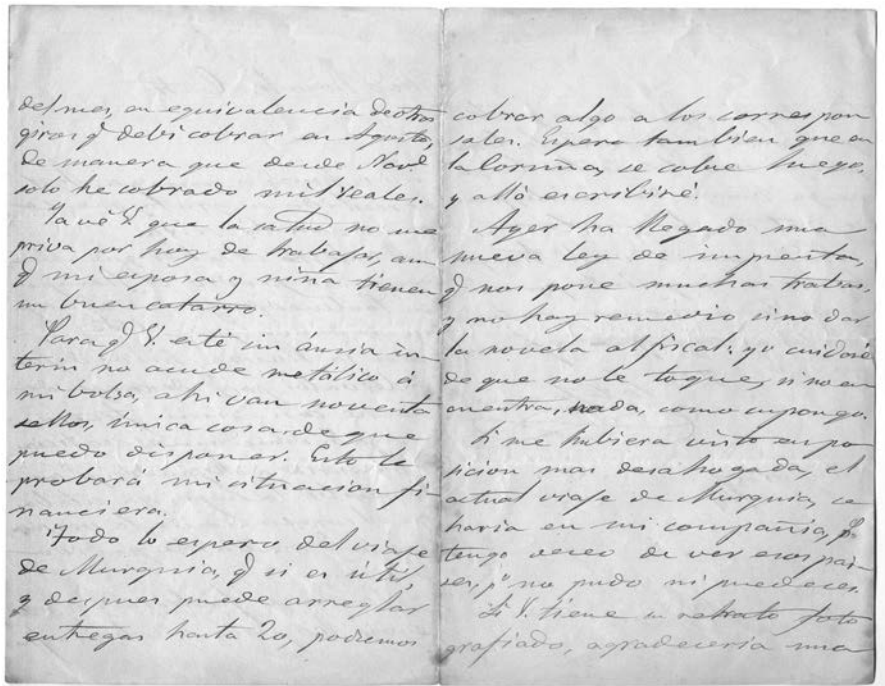 del mes, en equivalencia de otros
giros q̃ debi cobrar en Agosto,
de manera que desde Novᵉ
solo he cobrado mil reales.
Ya vé V. que la salud no me
priva por hoy de trabajar, aun
q̃ mi esposa y niña tienen
un buen catarro.
Para q̃ V. esté sin ánsia in-
terin no acude metálico á
mi bolsa, ahi van noventa
sellos, única cosa de que
puedo disponer. Esto le
probará mi situacion fi-
nanciera.
Todo lo espero del viaje
de Murguia, q̃ si es útil,
y despues puede arreglar
entregas hasta 20, podremos
cobrar algo a los correspon
sales. Espero tambien que en
la Coruña, se cobre luego,
y allá escribiré.
Ayer ha llegado una
nueva ley de imprenta,
q̃ nos pone muchas trabas,
y no hay remedio sino dar
la novela al fiscal: yo cuidaré
de que no le toque, si no en
cuentra, nada, como supongo.
Si me hubiera visto en po
sicion mas desahogada, el
actual viaje de Murguia, se
haria en mi compañia, p.
tengo deseo de ver esos pai-
ses, pº no pudo ni puede ser.
Si V. tiene su retrato foto
grafiado, agradeceria una